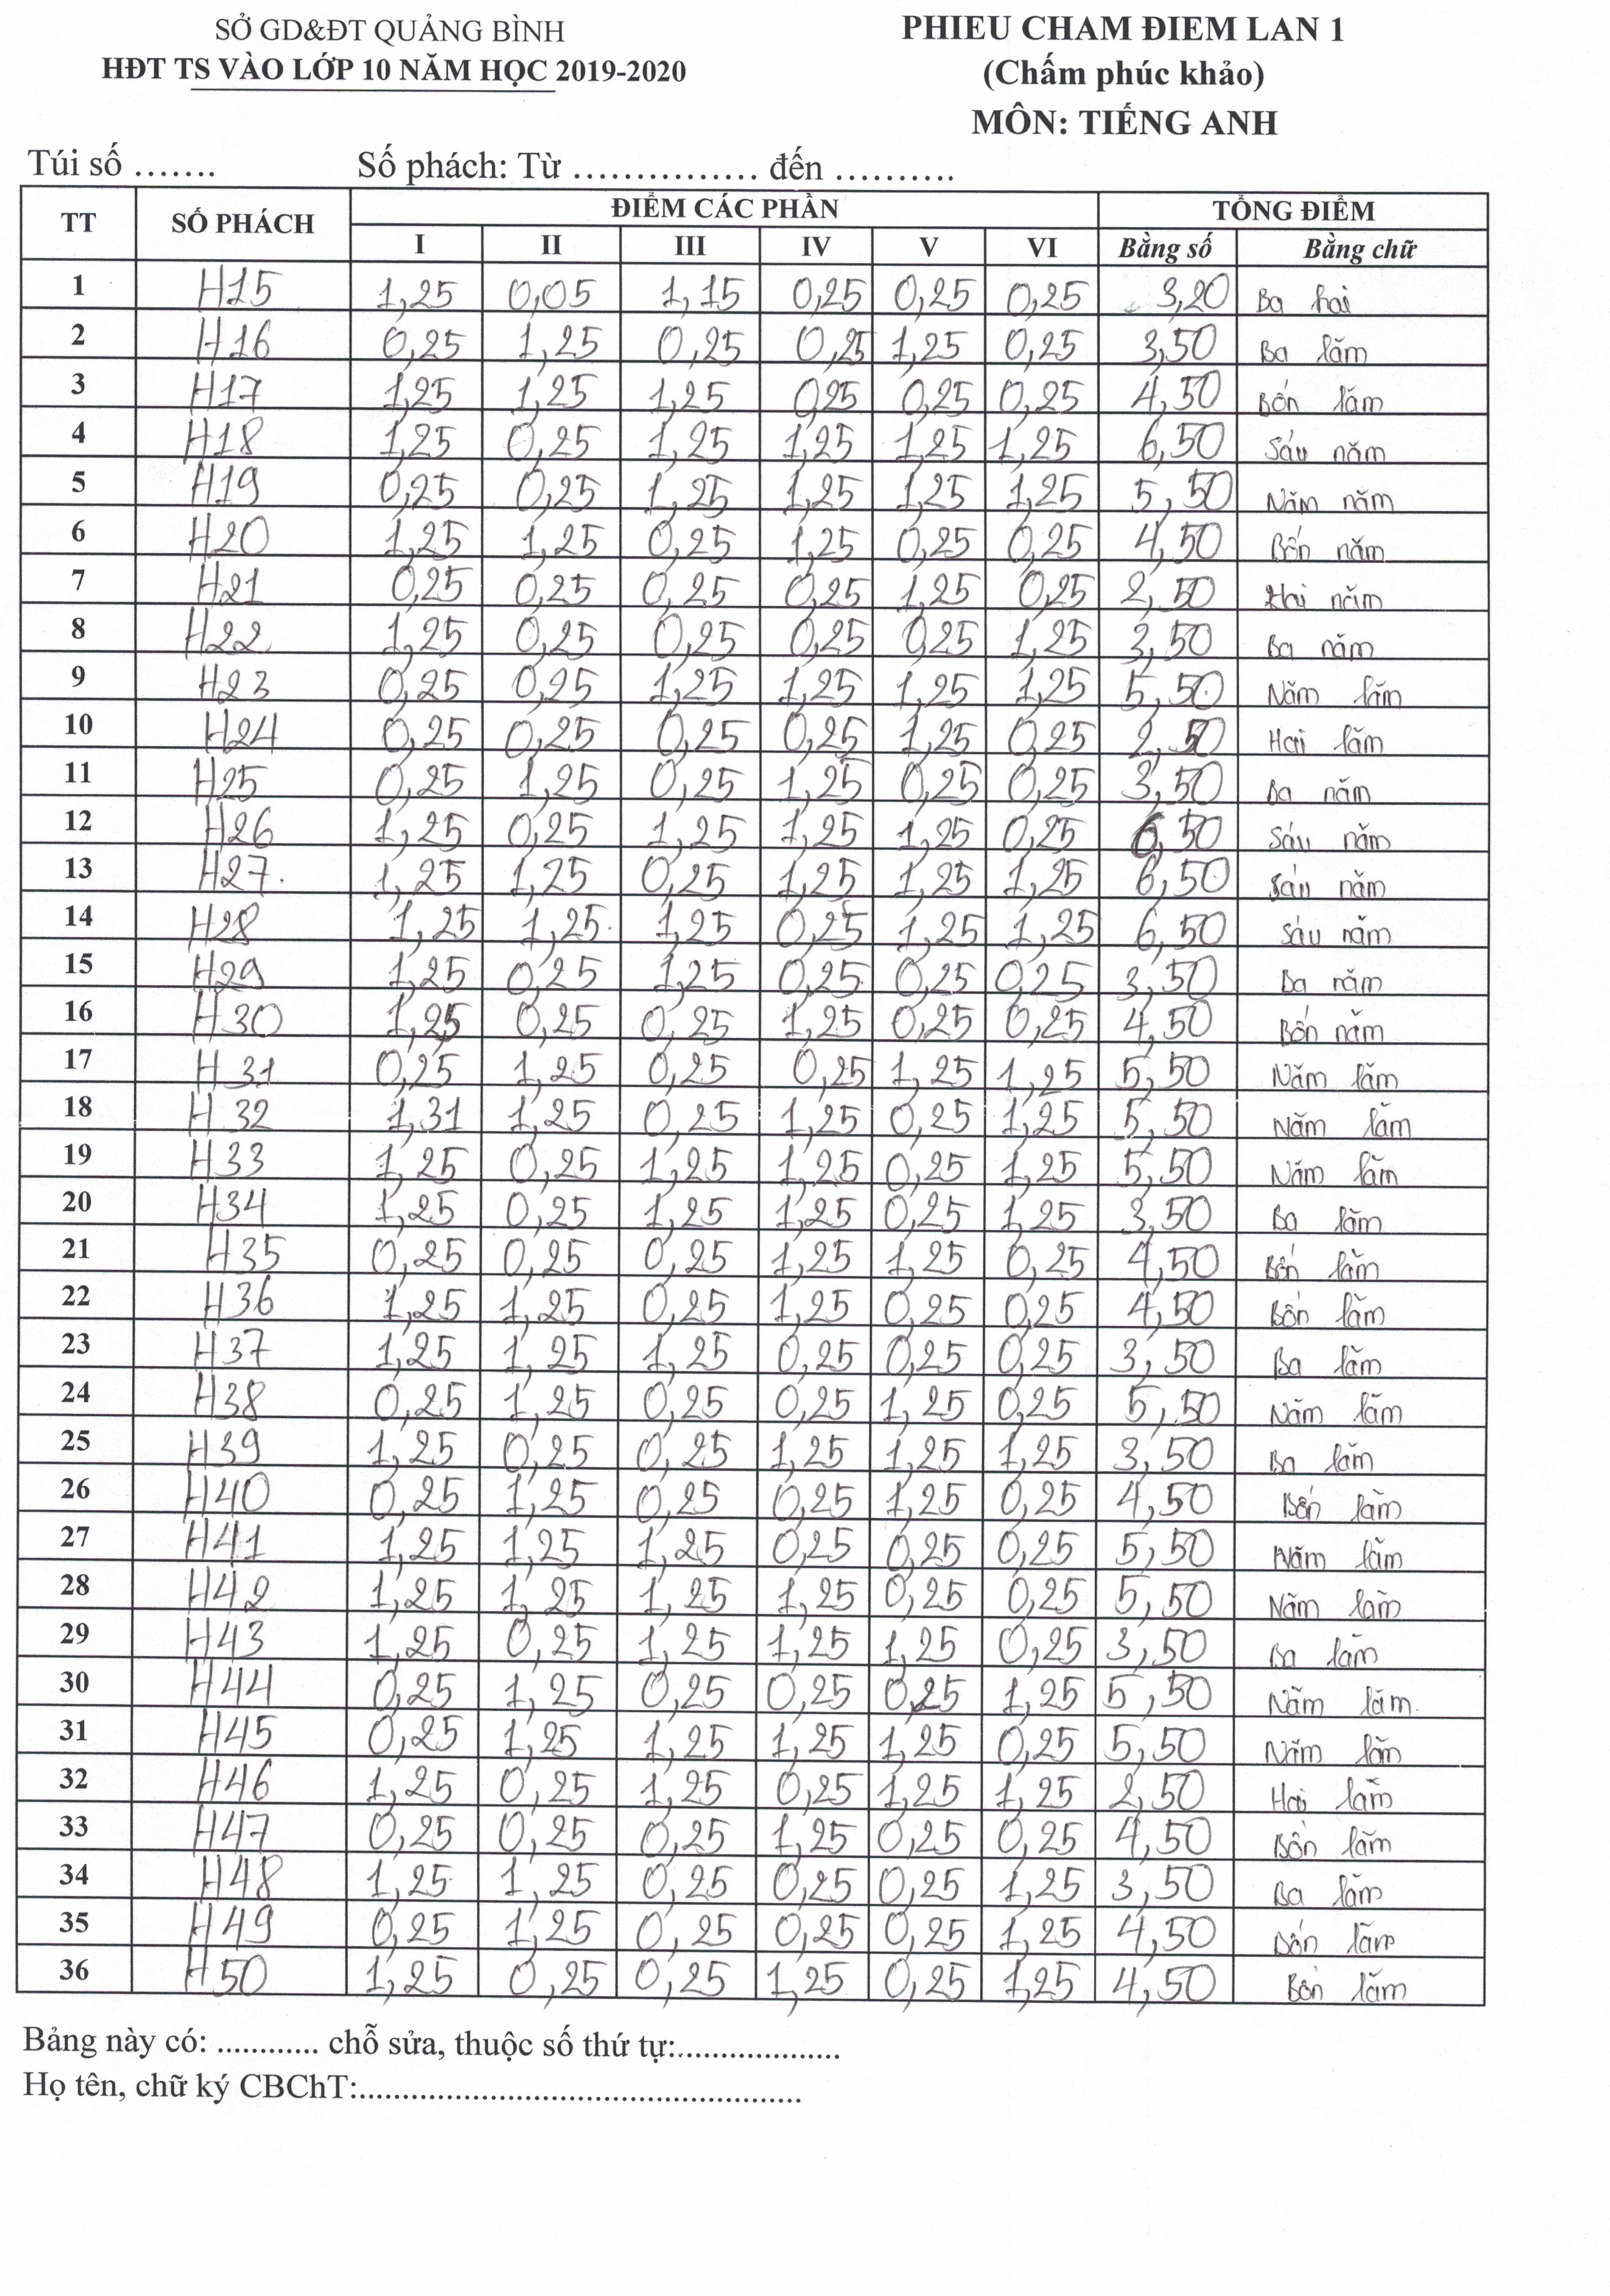 SỞ GD&ĐT QUẢNG BÌNH
HĐT TS VÀO LỚP 10 NĂM HỌC 2019-2020
PHIEU CHAM ĐIEM LAN 1
(Chấm phúc khảo)
MÔN: TIẾNG ANH
Túi số ....... Số phách: Từ ................ đến ..........
TT SỐ PHÁCH ĐIỂM CÁC PHẦN TỔNG ĐIỂM
I II III IV V VI Bằng số Bằng chữ
1 H15 1,25 0,05 1,15 0,25 0,25 0,25 3,20 Ba hai
2 H16 0,25 1,25 0,25 0,25 1,25 0,25 3,50 Ba lăm
3 H17 1,25 1,25 1,25 0,25 0,25 0,25 4,50 Bốn lăm
4 H18 1,25 0,25 1,25 1,25 1,25 1,25 6,50 Sáu năm
5 H19 0,25 0,25 1,25 1,25 1,25 1,25 5,50 Năm năm
6 H20 1,25 1,25 0,25 1,25 0,25 0,25 4,50 Bốn năm
7 H21 0,25 0,25 0,25 0,25 1,25 0,25 2,50 Hai năm
8 H22 1,25 0,25 0,25 0,25 0,25 1,25 3,50 Ba năm
9 H23 0,25 0,25 1,25 1,25 1,25 1,25 5,50 Năm lăm
10 H24 0,25 0,25 0,25 0,25 1,25 0,25 2,50 Hai lăm
11 H25 0,25 1,25 0,25 1,25 0,25 0,25 3,50 Ba năm
12 H26 1,25 0,25 1,25 1,25 1,25 0,25 6,50 Sáu năm
13 H27 1,25 1,25 0,25 1,25 1,25 1,25 6,50 Sáu năm
14 H28 1,25 1,25 1,25 0,25 1,25 1,25 6,50 Sáu năm
15 H29 1,25 0,25 1,25 0,25 0,25 0,25 3,50 Ba năm
16 H30 1,25 0,25 0,25 1,25 0,25 0,25 4,50 Bốn năm
17 H31 0,25 1,25 0,25 0,25 1,25 1,25 5,50 Năm lăm
18 H32 1,31 1,25 0,25 1,25 0,25 1,25 5,50 Năm lăm
19 H33 1,25 0,25 1,25 1,25 0,25 1,25 5,50 Năm lăm
20 H34 1,25 0,25 1,25 1,25 0,25 1,25 3,50 Ba lăm
21 H35 0,25 0,25 0,25 1,25 1,25 0,25 4,50 Bốn lăm
22 H36 1,25 1,25 0,25 1,25 0,25 0,25 4,50 Bốn lăm
23 H37 1,25 1,25 1,25 0,25 0,25 0,25 3,50 Ba lăm
24 H38 0,25 1,25 0,25 0,25 1,25 0,25 5,50 Năm lăm
25 H39 1,25 0,25 0,25 1,25 1,25 1,25 3,50 Ba lăm
26 H40 0,25 1,25 0,25 0,25 1,25 0,25 4,50 Bốn lăm
27 H41 1,25 1,25 1,25 0,25 0,25 0,25 5,50 Năm lăm
28 H42 1,25 1,25 1,25 1,25 0,25 0,25 5,50 Năm lăm
29 H43 1,25 0,25 1,25 1,25 1,25 0,25 3,50 Ba lăm
30 H44 0,25 1,25 0,25 0,25 0,25 1,25 5,50 Năm lăm
31 H45 0,25 1,25 1,25 1,25 1,25 0,25 5,50 Năm lăm
32 H46 1,25 0,25 1,25 0,25 1,25 1,25 2,50 Hai lăm
33 H47 0,25 0,25 0,25 1,25 0,25 0,25 4,50 Bốn lăm
34 H48 1,25 1,25 0,25 0,25 0,25 1,25 3,50 Ba lăm
35 H49 0,25 1,25 0,25 0,25 0,25 1,25 4,50 Bốn lăm
36 H50 1,25 0,25 0,25 1,25 0,25 1,25 4,50 Bốn lăm
Bảng này có: ............ chỗ sửa, thuộc số thứ tự:....................
Họ tên, chữ ký CBChT:......................................................